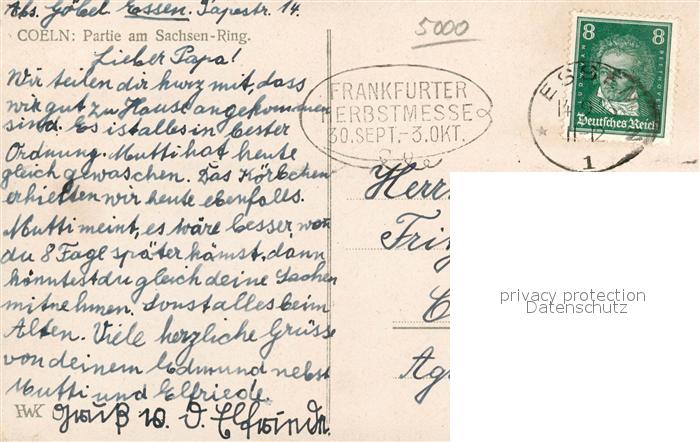 Abs. Göbel. Essen. Tapestr. 14.
COELN: Partie am Sachsen-Ring.
5000
Lieber Papa!
Wir teilen dir kurz mit, dass
wir gut zu Hause angekommen
sind. Es ist alles in bester
Ordnung. Mutti hat heute
gleich gewaschen. Das Körbchen
erhielten wir heute ebenfalls.
Mutti meint, es wäre besser, wen
du 8 Tage später kämst, dann
könntest du gleich deine Sachen
mitnehmen. Sonst alles beim
Alten. Viele herzliche Grüsse
von deinem Edmund nebst
Mutti und Elfriede.
HWK
Gruß v. d. Elfriede.
FRANKFURTER
HERBSTMESSE
30. SEPT.-3. OKT.
8 8
BEETHOVEN
Deutsches Reich
ESSEN
1
Herrn
privacy protection
Datenschutz